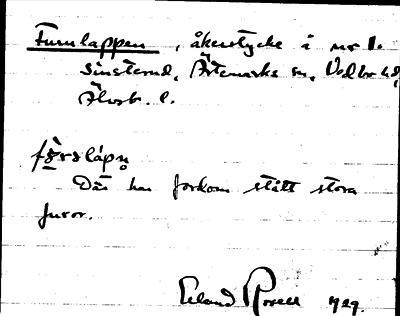 Furulappen, åkerstycke i nr 1.
Sinsterud, Ärtemarks sn, Vedbo hd,
Älvsb. l.
Där har förkom stått stora
furor.
Erland Rosell 1929.